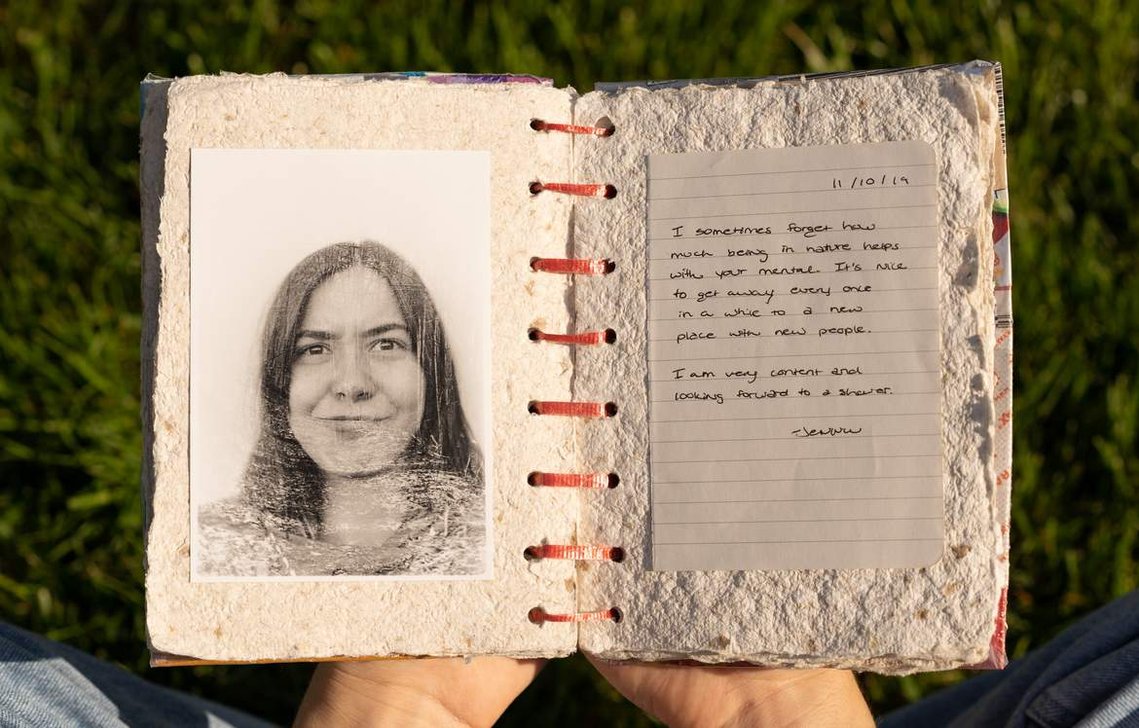 11/10/19
I sometimes forget how
much being in nature helps
with your mental. It's nice
to get away every once
in a while to a new
place with new people.
I am very content and
looking forward to a shower.